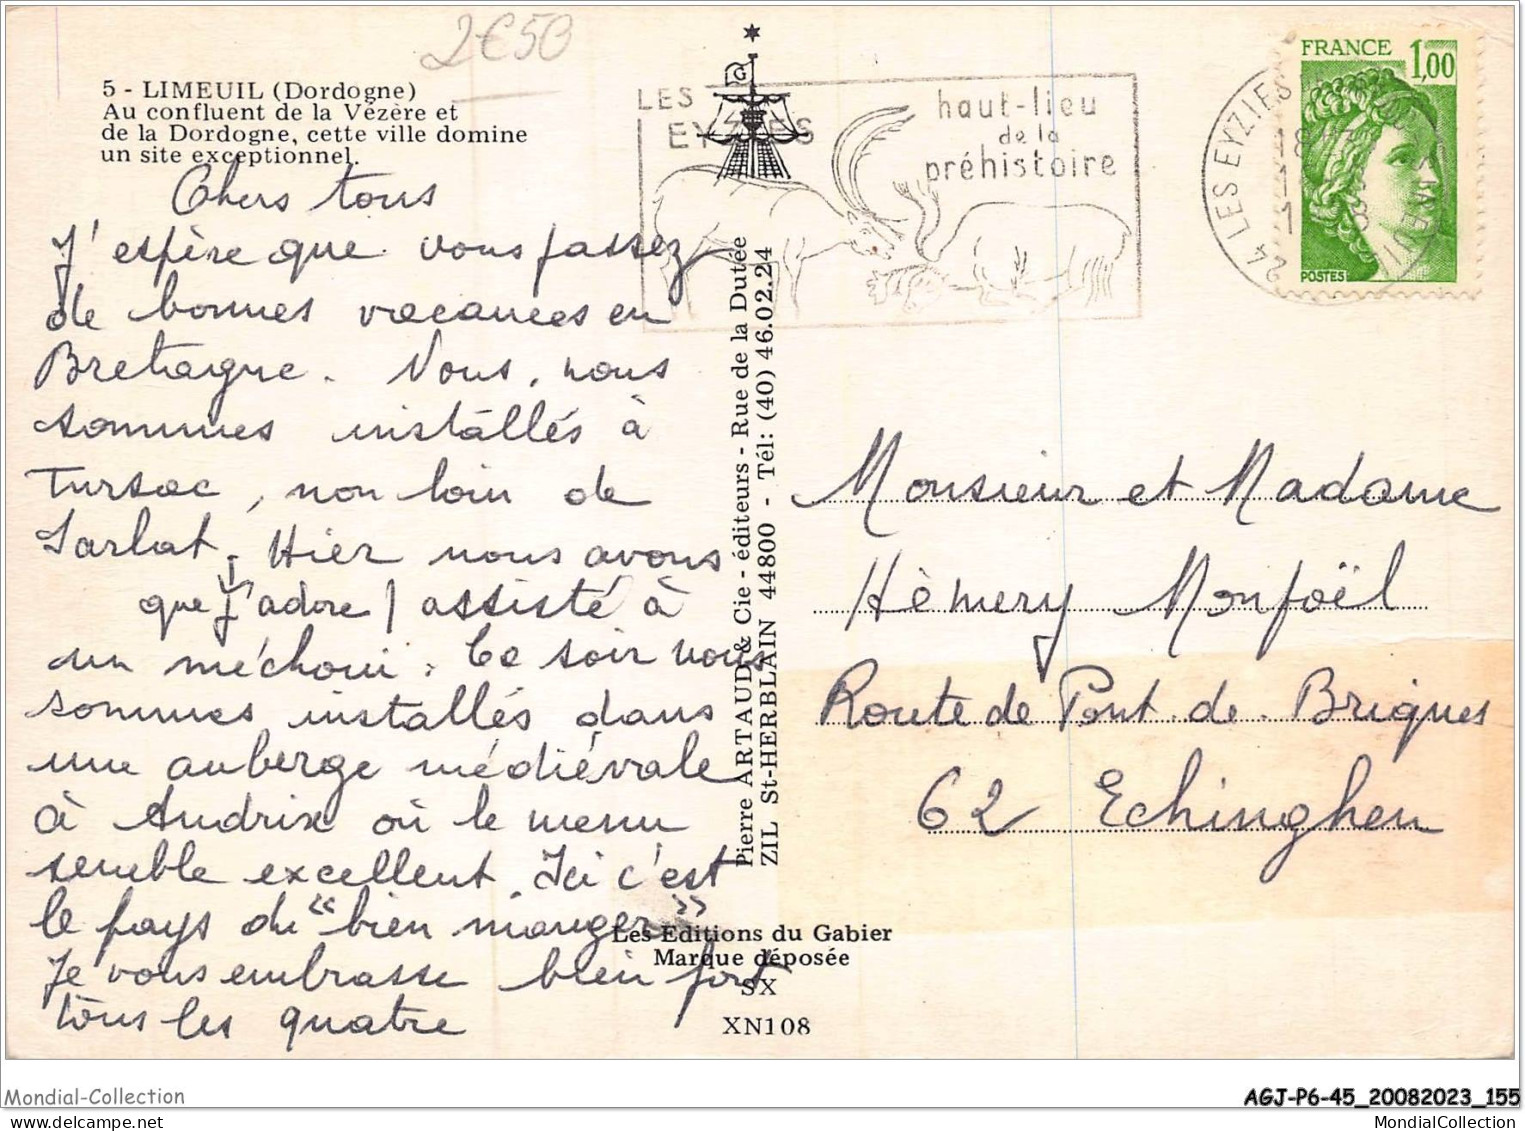 2€50
5 - LIMEUIL (Dordogne)
Au confluent de la Vézère et
de la Dordogne, cette ville domine
un site exceptionnel.
Chers tous
J'espère que vous passez
de bonnes vacances en
Bretagne. Nous, nous
sommes installés à
Tursac, non loin de
Sarlat. Hier nous avons
que j'adore / assisté à
un méchoui. Ce soir nous
sommes installés dans
une auberge médiévale
à Audrix où le menu
semble excellent. Ici c'est
le pays du "bien manger"
Je vous embrasse bien fort
tous les quatre
LES
EYZIES
haut-lieu
de la
préhistoire
24 LES EYZIES
FRANCE 1,00
POSTES
Pierre ARTAUD & Cie - éditeurs - Rue de la Dutée
ZIL St-HERBLAIN 44800 - Tél: (40) 46.02.24
Monsieur et Madame
Hèmery Monfoël
Route de Pont-de-Briques
62 Echinghen
Les Editions du Gabier
Marque déposée
SX
XN108
Mondial-Collection
AGJ-P6-45_20082023_155
MondialCollection